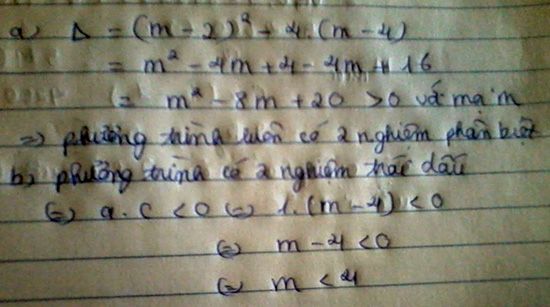 a, Δ = (m - 2)² - 4.(m - 4)
= m² - 4m + 4 - 4m + 16
= m² - 8m + 20 > 0 với mọi m
=> phương trình luôn có 2 nghiệm phân biệt
b, phương trình có 2 nghiệm trái dấu
(=) a.c < 0 (=) 1.(m - 4) < 0
(=) m - 4 < 0
(=) m < 4